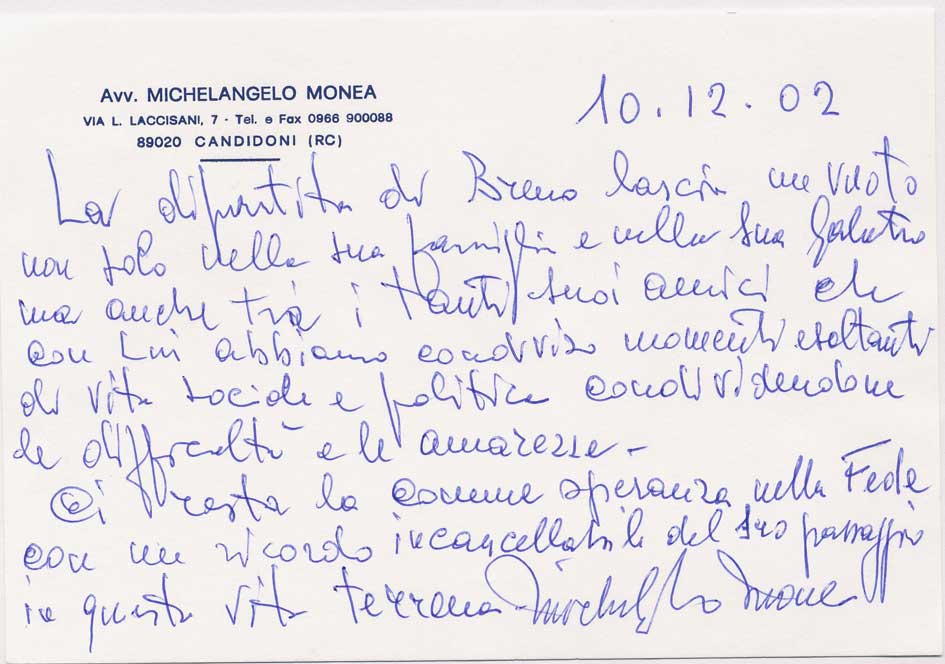 Avv. MICHELANGELO MONEA
VIA L. LACCISANI, 7 - Tel. e Fax 0966 900088
89020 CANDIDONI (RC)
10.12.02
La dipartita di Bruno lascia un vuoto
non solo nella sua famiglia e nella sua Galatro
ma anche tra i tanti suoi amici che
con Lui abbiamo condiviso momenti esaltanti
di vita sociale e politica condividendone
le difficoltà e le amarezze -
Ci resta la comune speranza nella Fede
con un ricordo incancellabile del suo passaggio
in questa vita terrena Michelangelo Monea